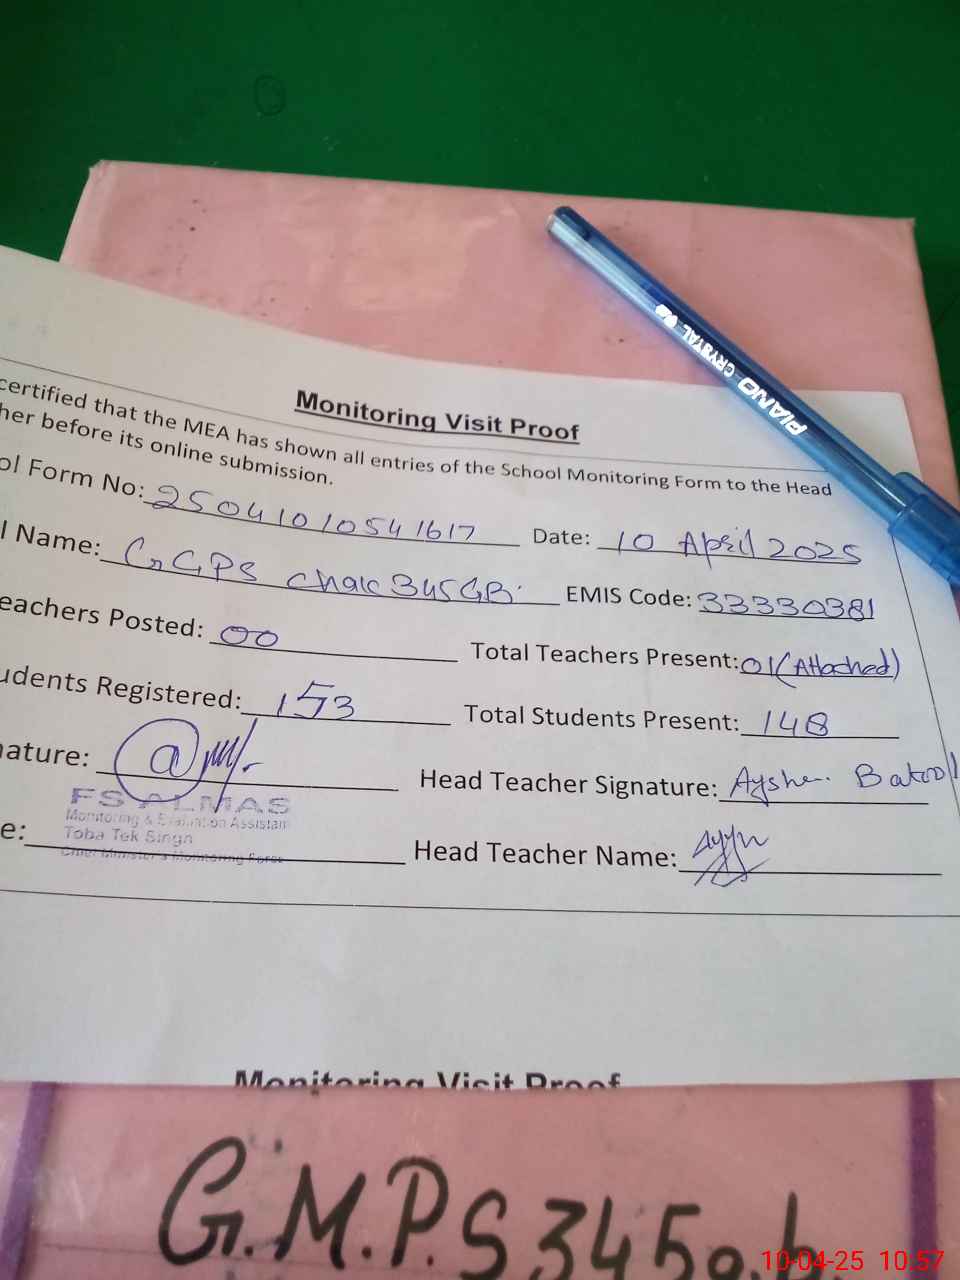 PIANO CRYSTAL
Monitoring Visit Proof
certified that the MEA has shown all entries of the School Monitoring Form to the Head
her before its online submission.
ol Form No: 25041010541617 Date: 10 April 2025
l Name: GGPS Chak 345GB. EMIS Code: 33330381
eachers Posted: 00 Total Teachers Present: 01 (Attached)
udents Registered: 153 Total Students Present: 148
nature: Head Teacher Signature: Aysha Batool
FS ALMAS
Monitoring & Evaluation Assistant
Toba Tek Singh
Chief Minister's Monitoring Force
e: Head Teacher Name:
Monitoring Visit Proof
G.M.P.S 345 g.b
10-04-25 10:57